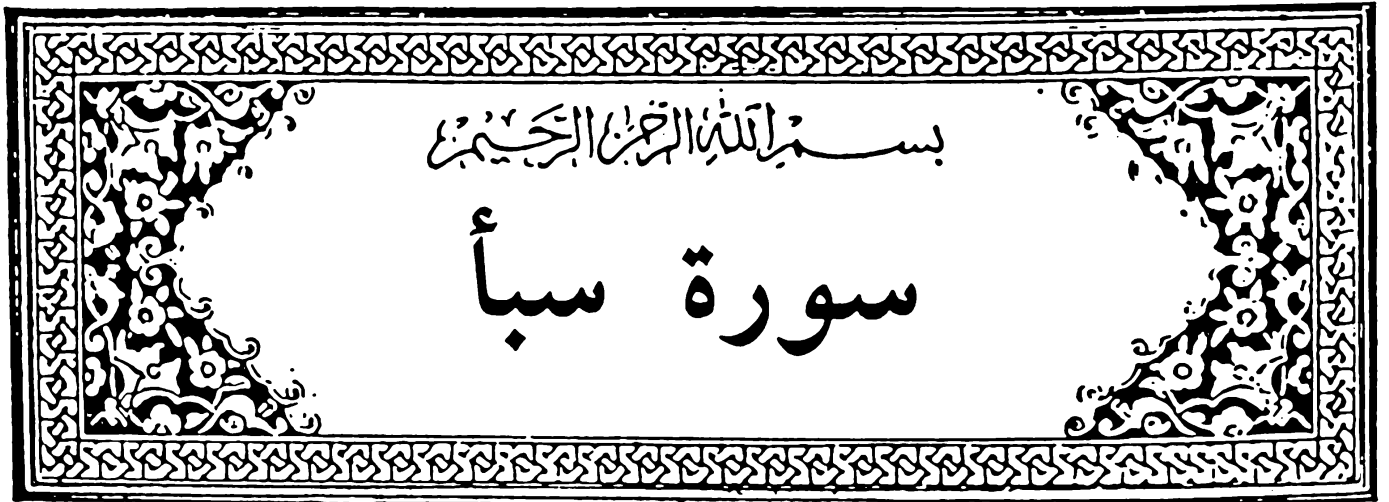 بسم الله الرحمن الرحيم
سورة سبأ